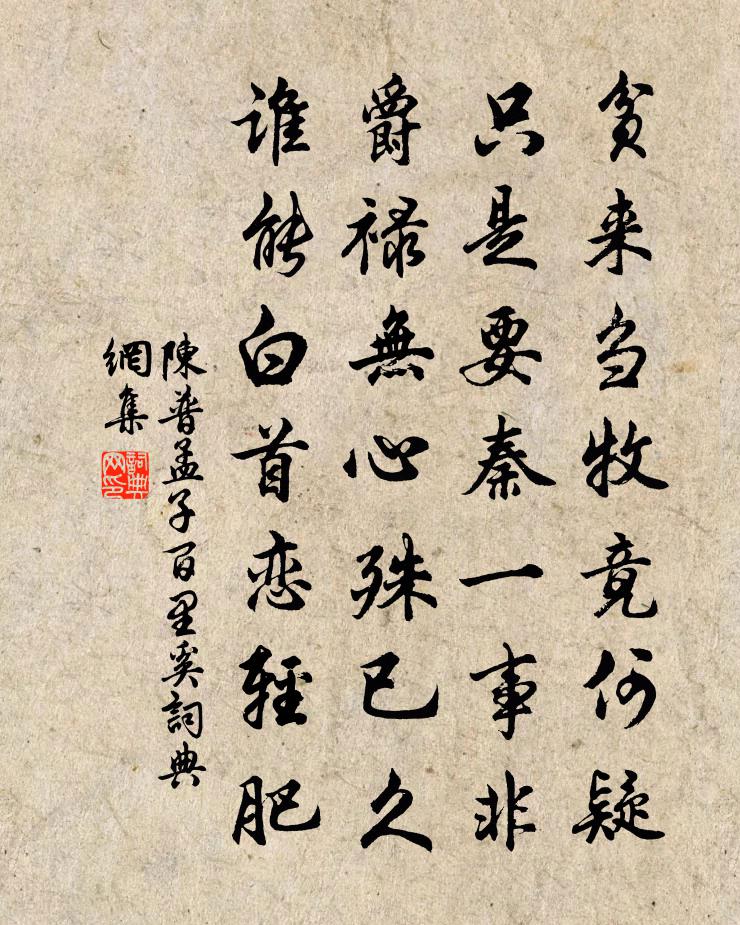 貧来当牧竟何疑
只是要秦一事非
爵禄無心殊已久
谁能白首恋輕肥
陳普孟子百里奚詞典
網集
詞典
网印